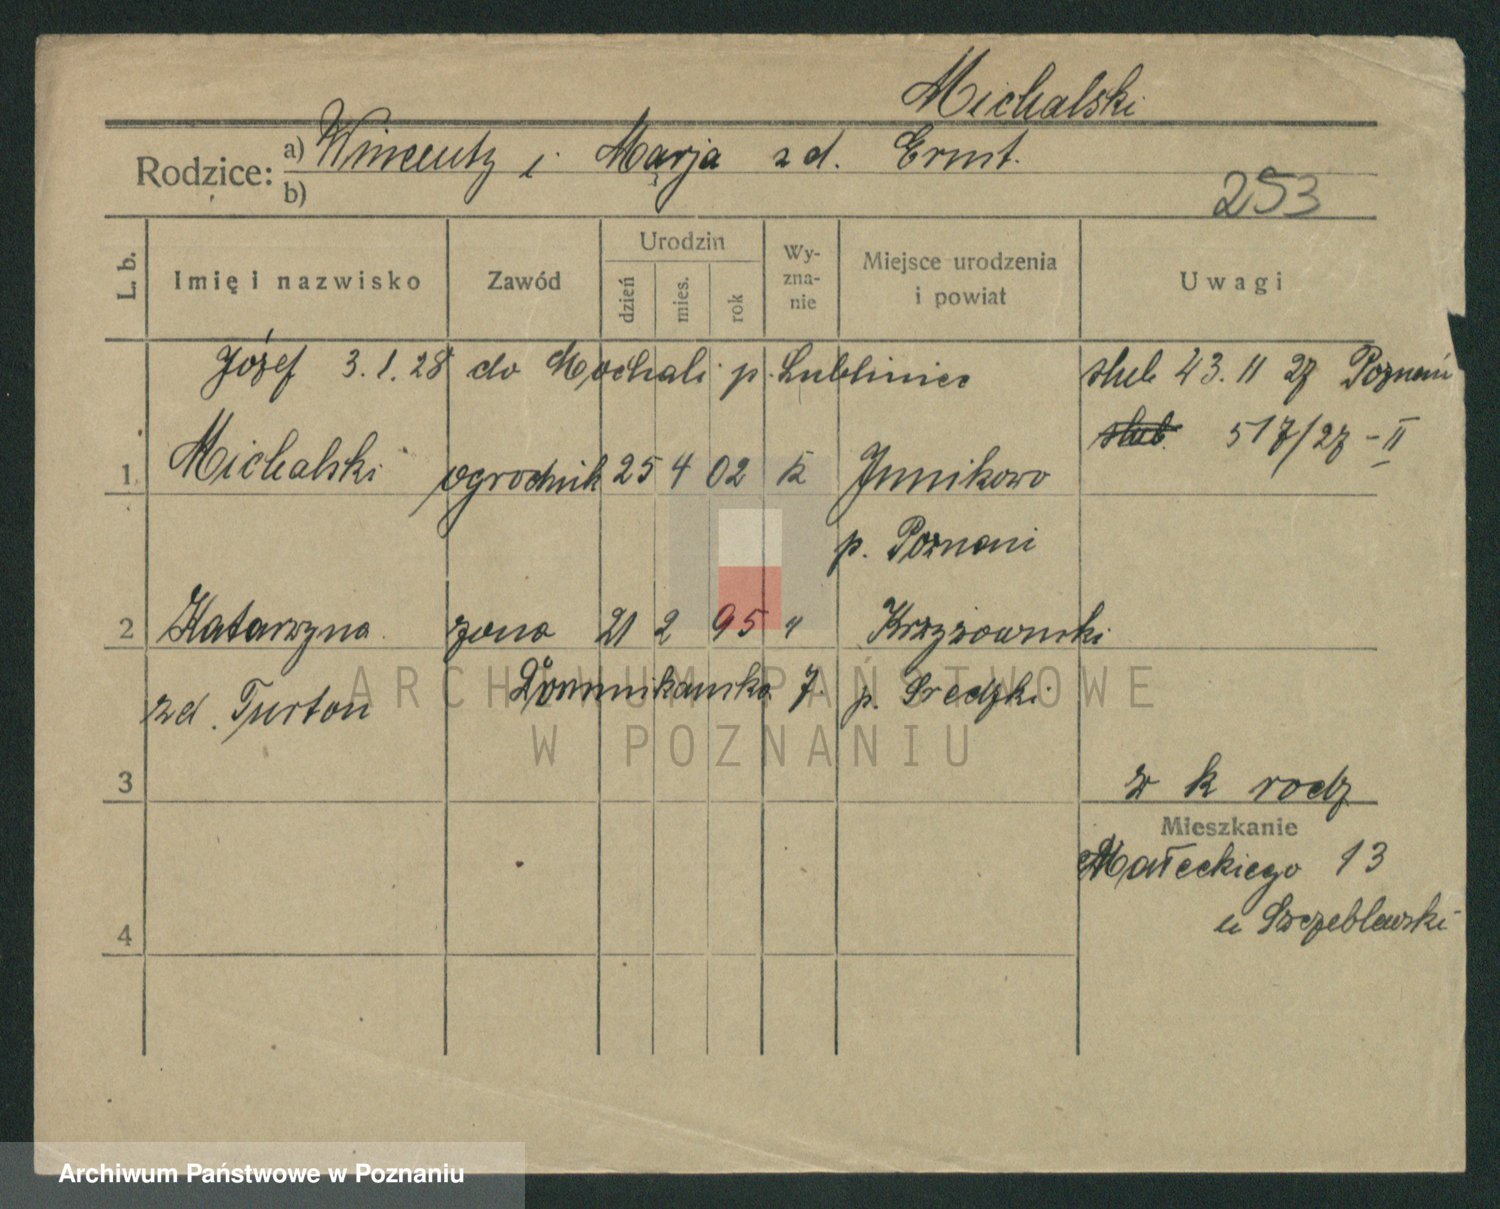 Michalski
Rodzice: a) Wincenty i Marja zd. Ernst.
b)
253
L. b. Imię i nazwisko Zawód Urodzin dzień mies. rok Wyzna-nie Miejsce urodzenia i powiat Uwagi
Józef 3.1.28 do Kochali p. Lubliniec ślub 23.11 27 Poznań
ślub. 517/27 - II
1 Michalski ogrodnik 25 4 02 k Junikowo
p. Poznani
2 Katarzyna żona 21 2 95 " Krzyżownki
zd. Turton Dominikańska 7. p. Średzki
3 z k rodz
Mieszkanie
Małeckiego 13
4 u Szczeblewski
ARCHIWUM PAŃSTWOWE
W POZNANIU
Archiwum Państwowe w Poznaniu